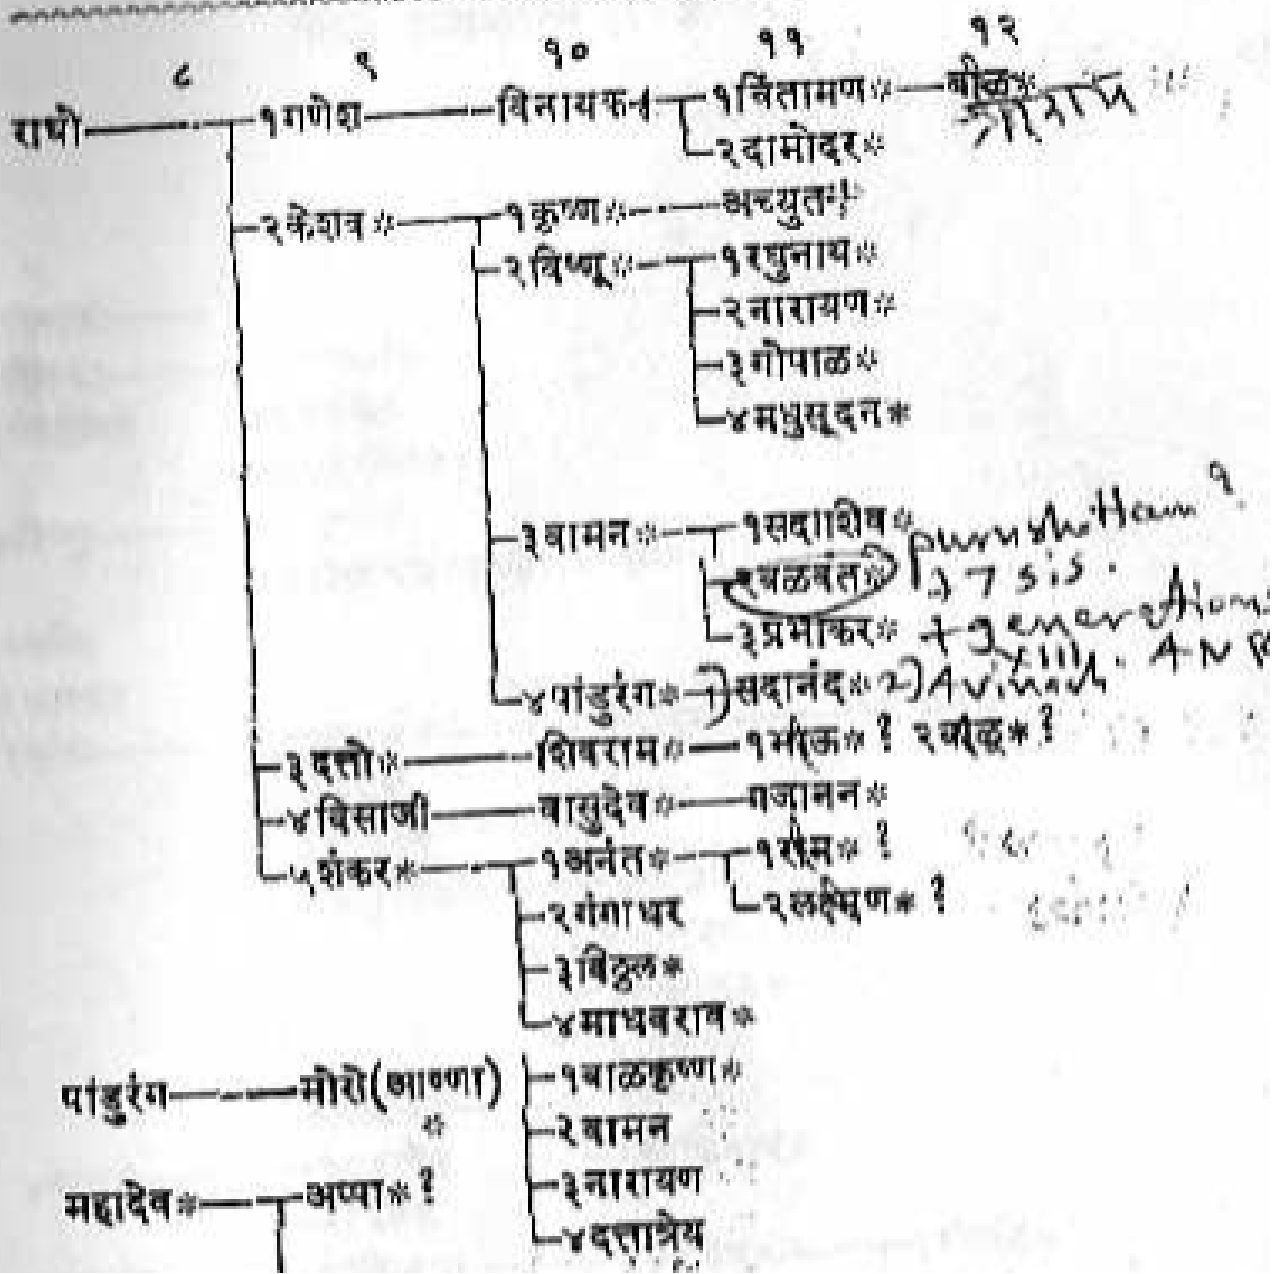 ८ ९ १० ११ १२
राघो १गणेश विनायक १चिंतामण* बाळ*
२दामोदर*
२केशव* १कृष्ण* अच्युत*
२विष्णू* १रघुनाथ*
२नारायण*
३गोपाळ*
४मधुसूदन*
३वामन* १सदाशिव* purushottam ?
२बळवंत* 7 sis.
३प्रभाकर* + generations
XIII.
४पांडुरंग* 1) सदानंद* 2) Avinash
३दत्तो* शिवराम* १भाऊ* ? २बाळ* ?
४विसाजी वासुदेव* गजानन*
५शंकर* १अनंत* १राम* ?
२गंगाधर २लक्ष्मण* ?
३विठ्ठल*
४माधवराव*
पांडुरंग मोरो(आण्णा) * १बाळकृष्ण*
२वामन
३नारायण
महादेव* अप्पा* ?
४दत्तात्रेय